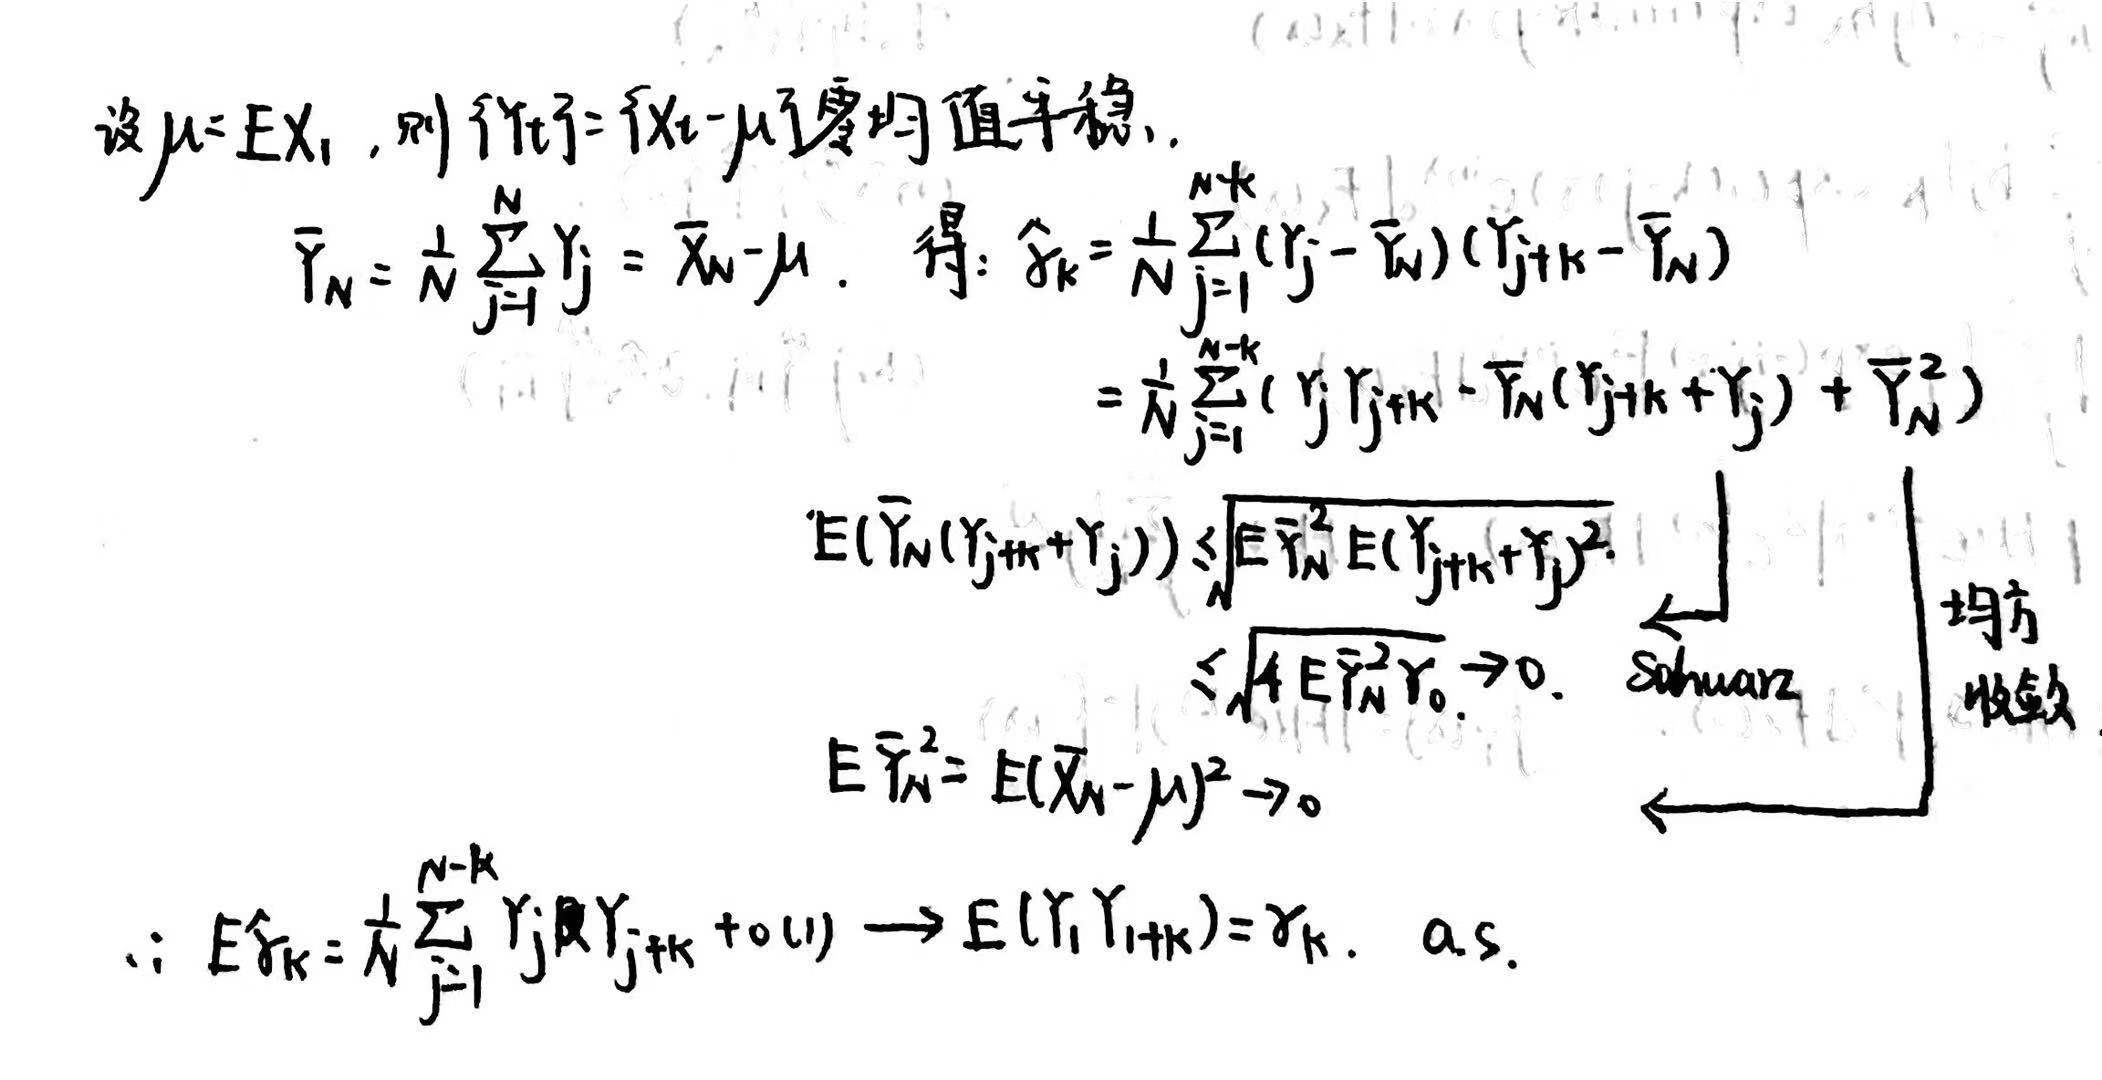 设 μ = EX₁, 则 {Yt} = {Xt - μ} 零均值平稳,.
Ȳ_N = 1/N ∑_{j=1}^{N} Y_j = X̄_N - μ. 得: γ̂_k = 1/N ∑_{j=1}^{N-k} (Y_j - Ȳ_N)(Y_{j+k} - Ȳ_N)
= 1/N ∑_{j=1}^{N-k} (Y_j Y_{j+k} - Ȳ_N(Y_{j+k} + Y_j) + Ȳ_N²)
E(Ȳ_N(Y_{j+k} + Y_j)) ≤ √(E Ȳ_N² E(Y_{j+k} + Y_j)²).
均方
≤ √(4 E Ȳ_N² γ₀). → 0. Schwarz
收敛
E Ȳ_N² = E(X̄_N - μ)² → 0
∴ E γ̂_k = 1/N ∑_{j=1}^{N-k} Y_j Y_{j+k} + o(1) → E(Y₁ Y_{1+k}) = γ_k. a.s.